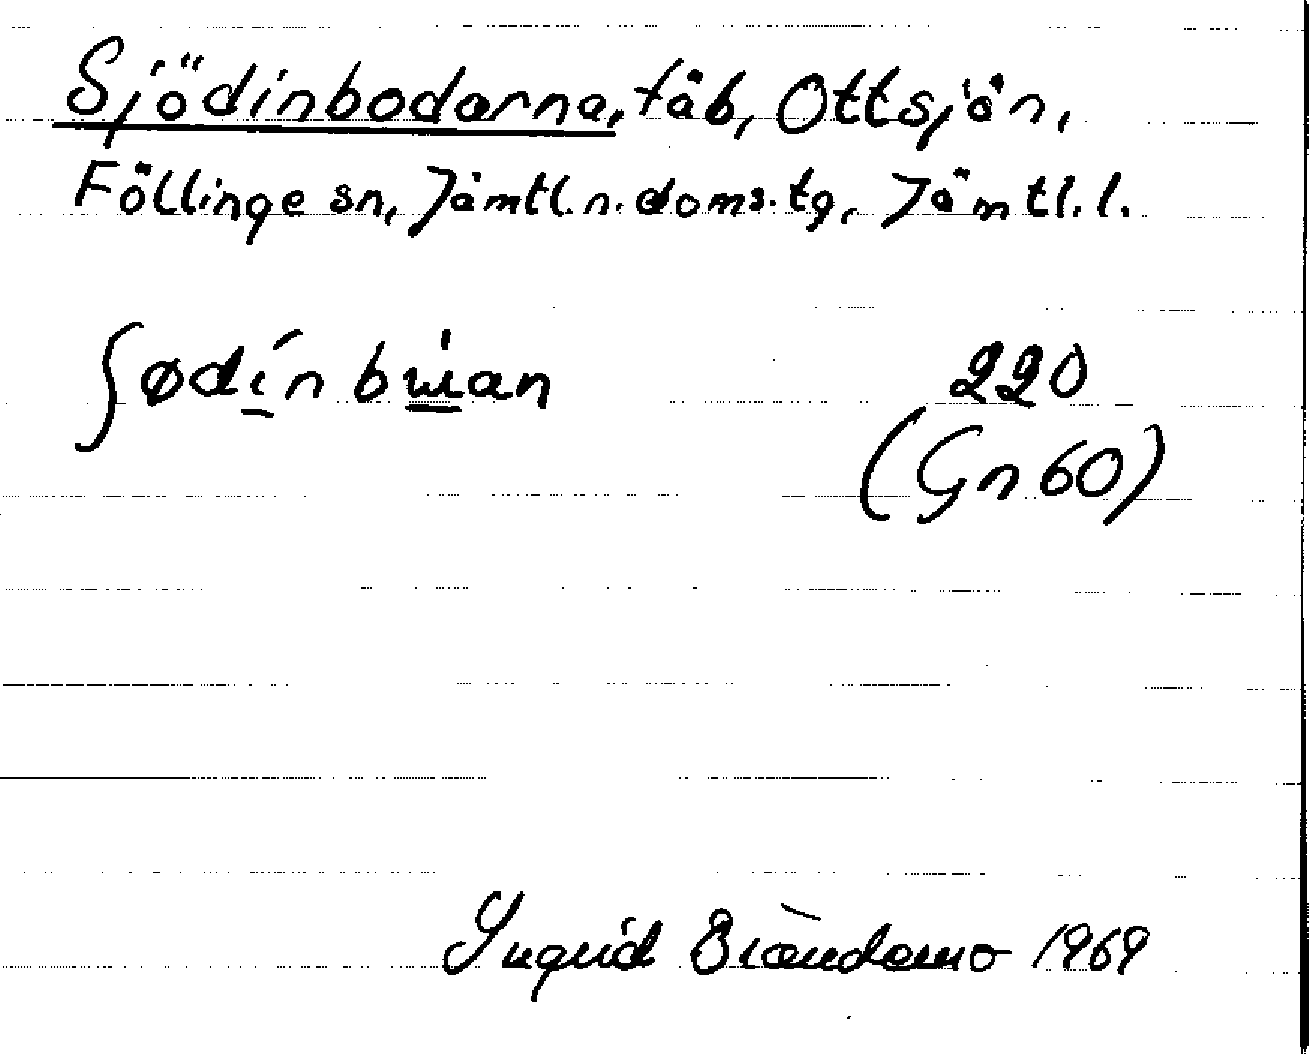 Sjödinbodarna, fäb, Ottsjön,
Föllinge sn, Jämtl. n. doms. tg, Jämtl. l.
220
(Gn 60)
Ingrid Brändemo 1969